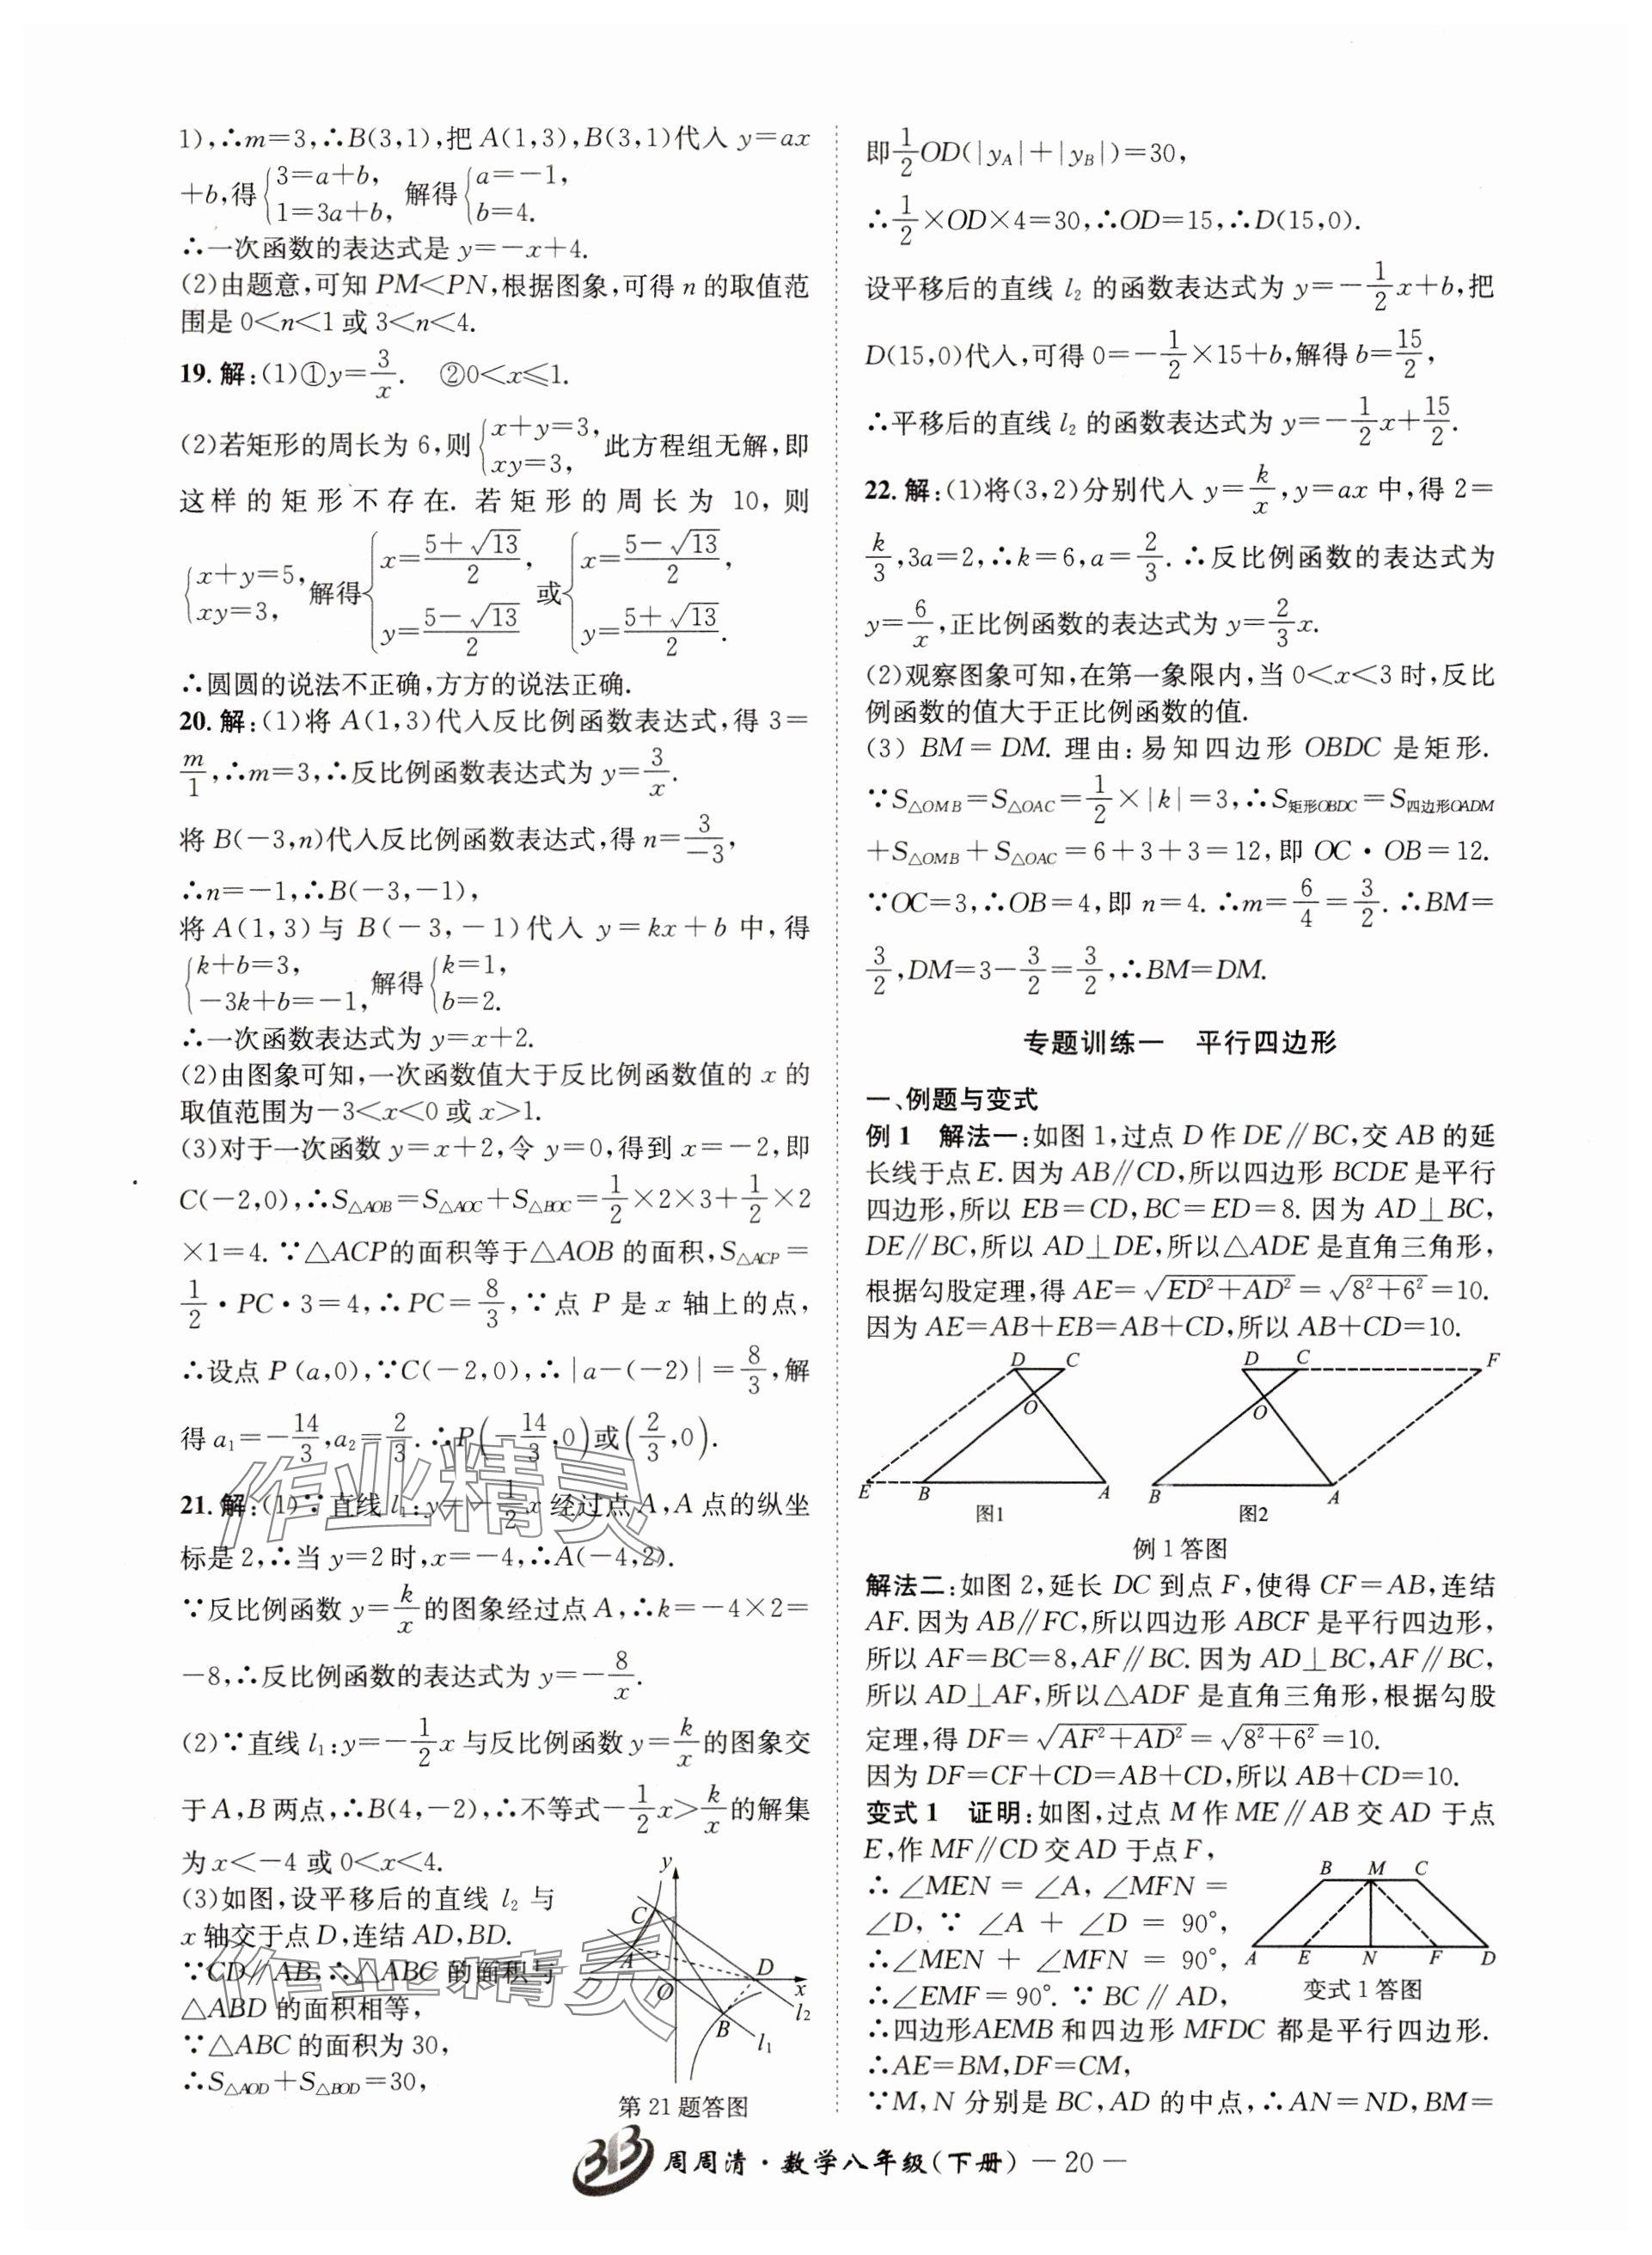 1),∴m=3,∴B(3,1),把A(1,3),B(3,1)代入 y=ax
+b,得{3=a+b, 1=3a+b, 解得{a=-1, b=4.
∴一次函数的表达式是 y=-x+4.
(2)由题意,可知 PM<PN,根据图象,可得 n 的取值范
围是 0<n<1 或 3<n<4.
19. 解:(1)①y=3/x. ②0<x≤1.
(2)若矩形的周长为 6,则{x+y=3, xy=3, 此方程组无解,即
这样的矩形不存在. 若矩形的周长为 10,则
{x+y=5, xy=3, 解得{x=(5+√13)/2, y=(5-√13)/2 或{x=(5-√13)/2, y=(5+√13)/2.
∴圆圆的说法不正确,方方的说法正确.
20. 解:(1)将 A(1,3)代入反比例函数表达式,得 3=
m/1,∴m=3,∴反比例函数表达式为 y=3/x.
将 B(-3,n)代入反比例函数表达式,得 n=3/-3,
∴n=-1,∴B(-3,-1),
将 A(1,3)与 B(-3,-1)代入 y=kx+b 中,得
{k+b=3, -3k+b=-1, 解得{k=1, b=2.
∴一次函数表达式为 y=x+2.
(2)由图象可知,一次函数值大于反比例函数值的 x 的
取值范围为-3<x<0 或 x>1.
(3)对于一次函数 y=x+2,令 y=0,得到 x=-2,即
C(-2,0),∴S△AOB=S△AOC+S△BOC=1/2×2×3+1/2×2
×1=4. ∵△ACP的面积等于△AOB 的面积,S△ACP=
1/2·PC·3=4,∴PC=8/3,∵点 P 是 x 轴上的点,
∴设点 P (a,0),∵C(-2,0),∴|a-(-2)|=8/3,解
得 a₁=-14/3,a₂=2/3.∴P(-14/3,0)或(2/3,0).
21. 解:(1)∵直线 l₁:y=-1/2x 经过点 A,A 点的纵坐
标是 2,∴当 y=2 时,x=-4,∴A(-4,2).
∵反比例函数 y=k/x的图象经过点 A,∴k=-4×2=
-8,∴反比例函数的表达式为 y=-8/x.
(2)∵直线 l₁:y=-1/2x 与反比例函数 y=k/x的图象交
于 A,B 两点,∴B(4,-2),∴不等式-1/2x>k/x的解集
为 x<-4 或 0<x<4.
(3)如图,设平移后的直线 l₂ 与
x 轴交于点 D,连结 AD,BD.
∵CD∥AB,∴△ABC 的面积与
△ABD 的面积相等,
∵△ABC 的面积为 30,
∴S△AOD+S△BOD=30,
y
C
A
D
O
x
B
l₂
l₁
第 21 题答图
即1/2OD(|yA|+|yB|)=30,
∴1/2×OD×4=30,∴OD=15,∴D(15,0).
设平移后的直线 l₂ 的函数表达式为 y=-1/2x+b,把
D(15,0)代入,可得 0=-1/2×15+b,解得 b=15/2,
∴平移后的直线 l₂ 的函数表达式为 y=-1/2x+15/2.
22. 解:(1)将(3,2)分别代入 y=k/x,y=ax 中,得 2=
k/3,3a=2,∴k=6,a=2/3. ∴反比例函数的表达式为
y=6/x,正比例函数的表达式为 y=2/3x.
(2)观察图象可知,在第一象限内,当 0<x<3 时,反比
例函数的值大于正比例函数的值.
(3) BM=DM. 理由:易知四边形 OBDC 是矩形.
∵S△OMB=S△OAC=1/2×|k|=3,∴S矩形OBDC=S四边形OADM
+S△OMB+S△OAC=6+3+3=12,即 OC·OB=12.
∵OC=3,∴OB=4,即 n=4. ∴m=6/4=3/2. ∴BM=
3/2,DM=3-3/2=3/2,∴BM=DM.
专题训练一 平行四边形
一、例题与变式
例1 解法一:如图 1,过点 D 作 DE∥BC,交 AB 的延
长线于点 E. 因为 AB∥CD,所以四边形 BCDE 是平行
四边形,所以 EB=CD,BC=ED=8. 因为 AD⊥BC,
DE∥BC,所以 AD⊥DE,所以△ADE 是直角三角形,
根据勾股定理,得 AE=√(ED²+AD²)=√(8²+6²)=10.
因为 AE=AB+EB=AB+CD,所以 AB+CD=10.
D C
O
E B A
图1
D C F
O
B A
图2
例 1 答图
解法二:如图 2,延长 DC 到点 F,使得 CF=AB,连结
AF. 因为 AB∥FC,所以四边形 ABCF 是平行四边形,
所以 AF=BC=8,AF∥BC. 因为 AD⊥BC,AF∥BC,
所以 AD⊥AF,所以△ADF 是直角三角形,根据勾股
定理,得 DF=√(AF²+AD²)=√(8²+6²)=10.
因为 DF=CF+CD=AB+CD,所以 AB+CD=10.
变式 1 证明:如图,过点 M 作 ME∥AB 交 AD 于点
E,作 MF∥CD 交 AD 于点 F,
∴∠MEN=∠A,∠MFN=
∠D,∵∠A+∠D=90°,
∴∠MEN+∠MFN=90°,
∴∠EMF=90°. ∵BC∥AD,
B M C
A E N F D
变式 1 答图
∴四边形AEMB 和四边形 MFDC 都是平行四边形.
∴AE=BM,DF=CM,
∵M,N 分别是 BC,AD 的中点,∴AN=ND,BM=
周周清·数学八年级(下册) — 20 —
作业精灵
作业精灵